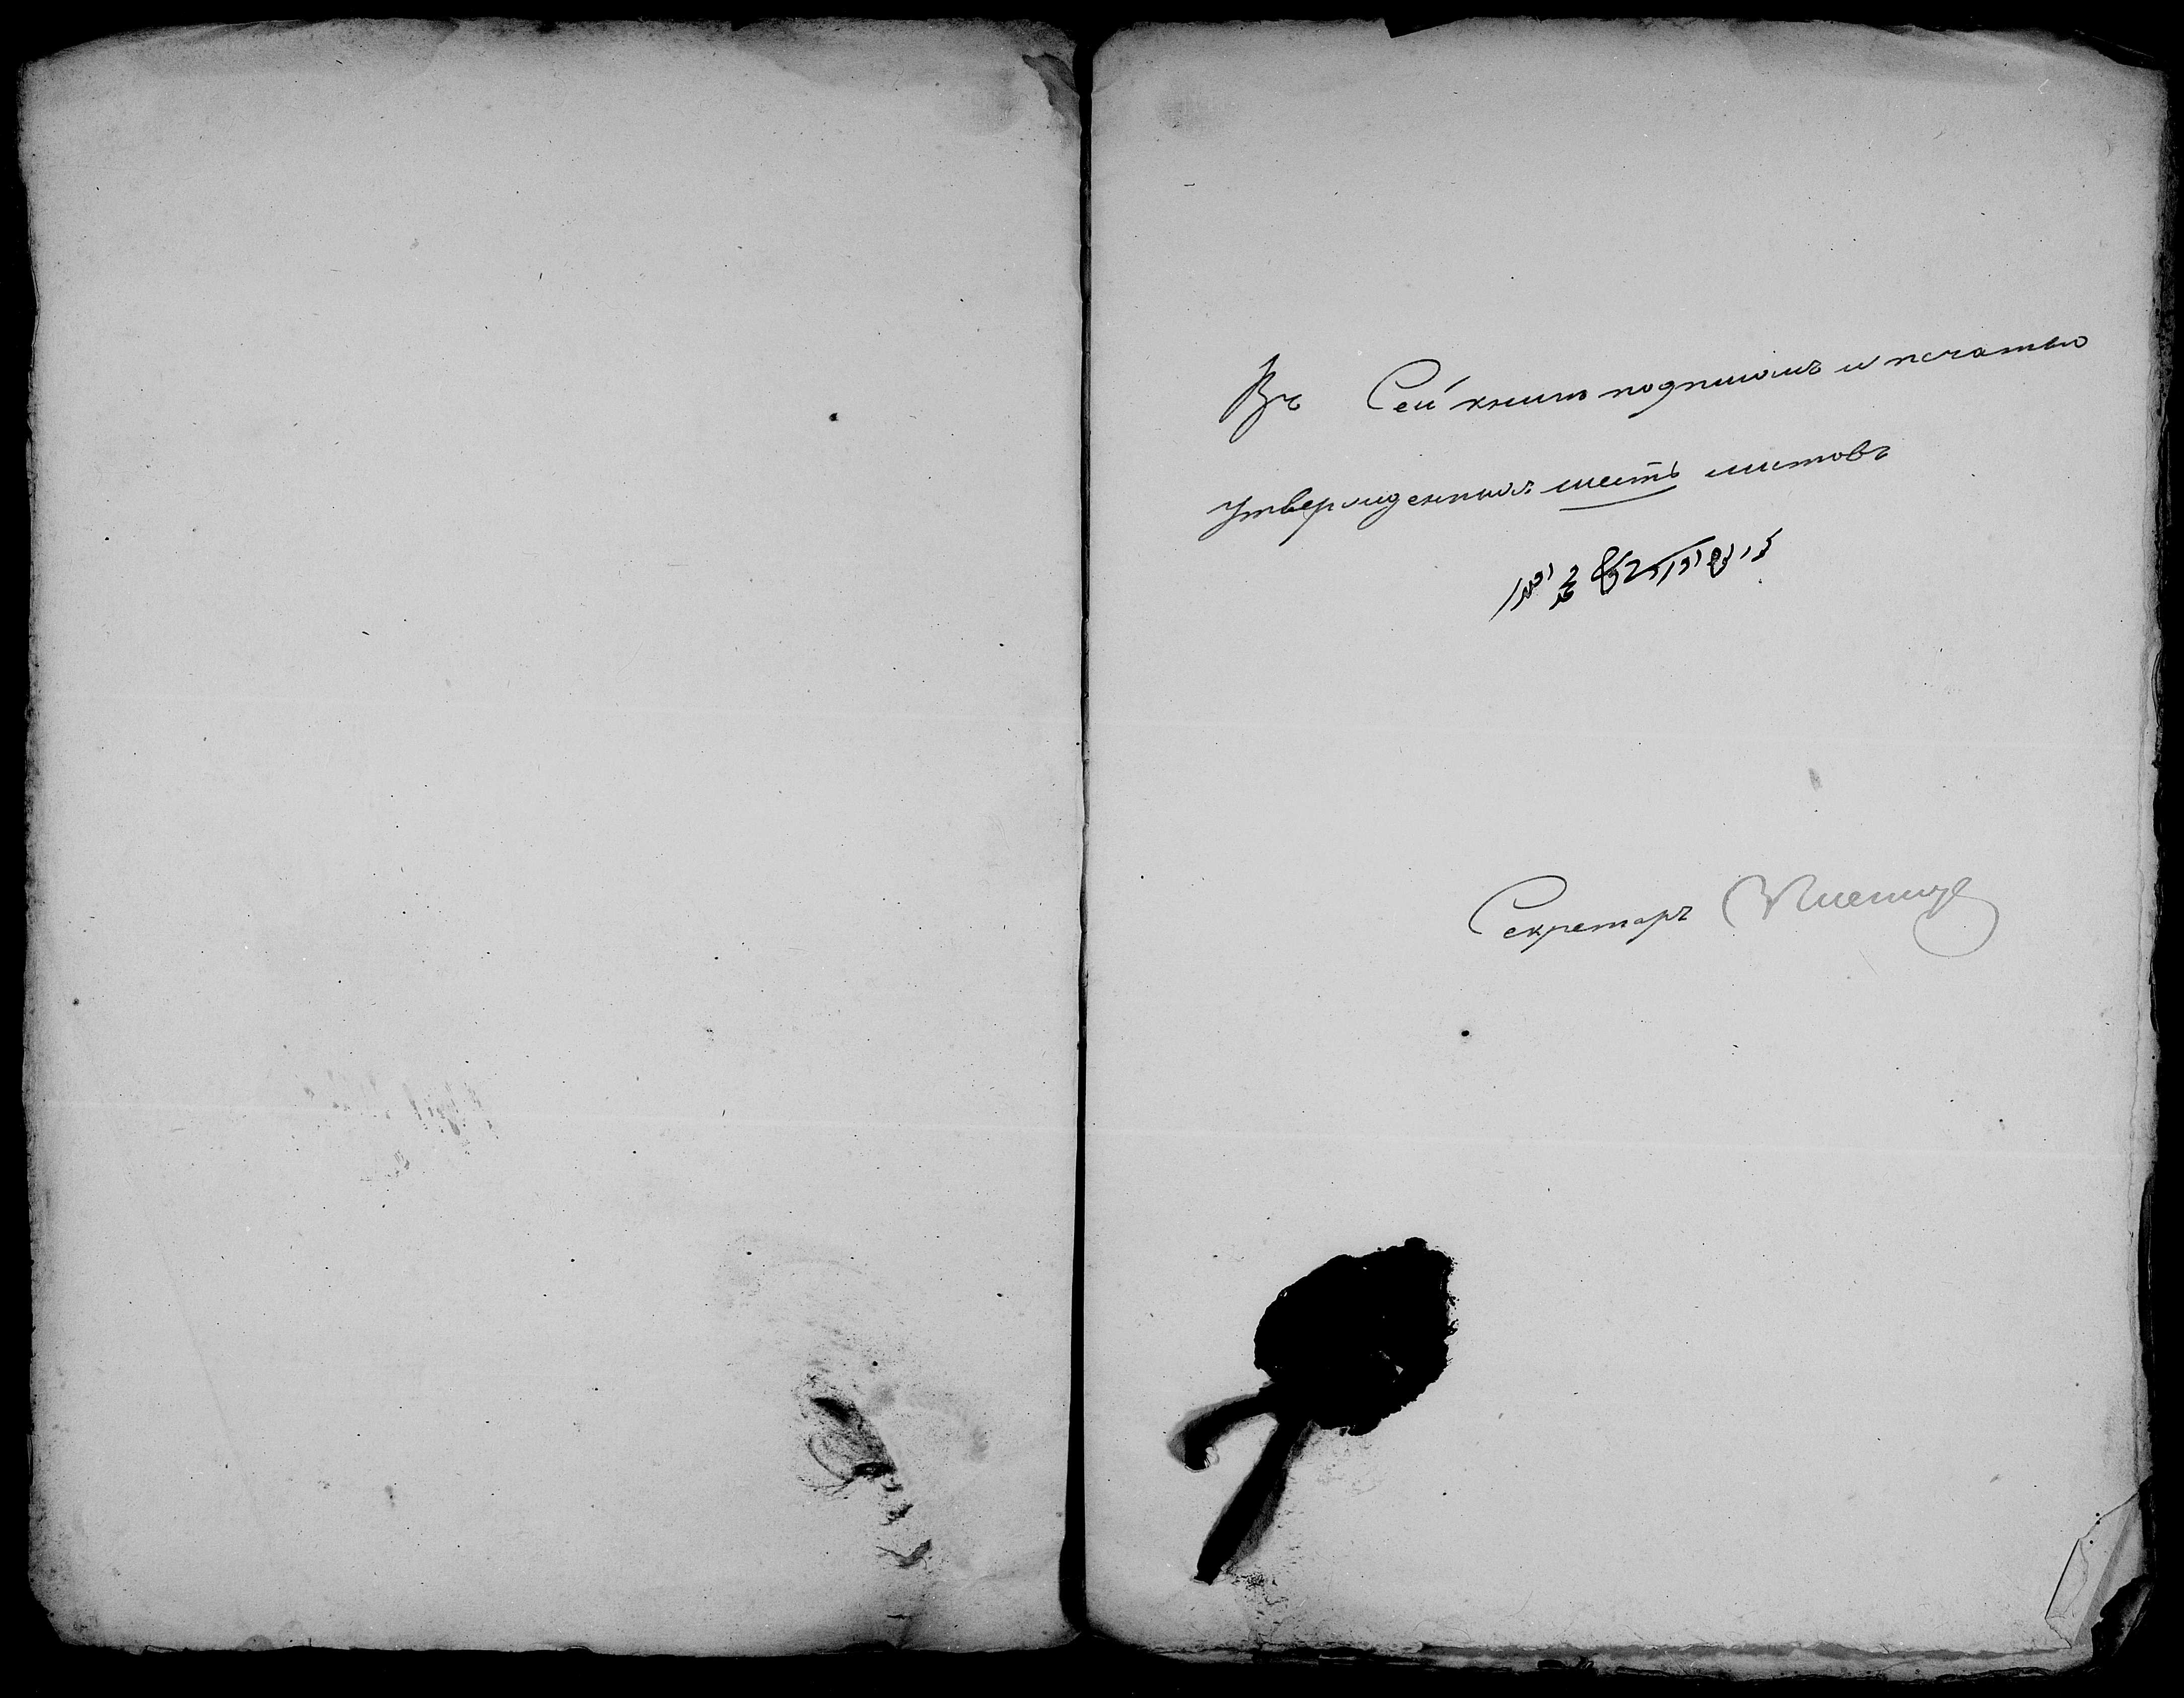 Въ Сей книгѣ подписомъ и печатью
утвержденныя шесть листовъ
Секретарь